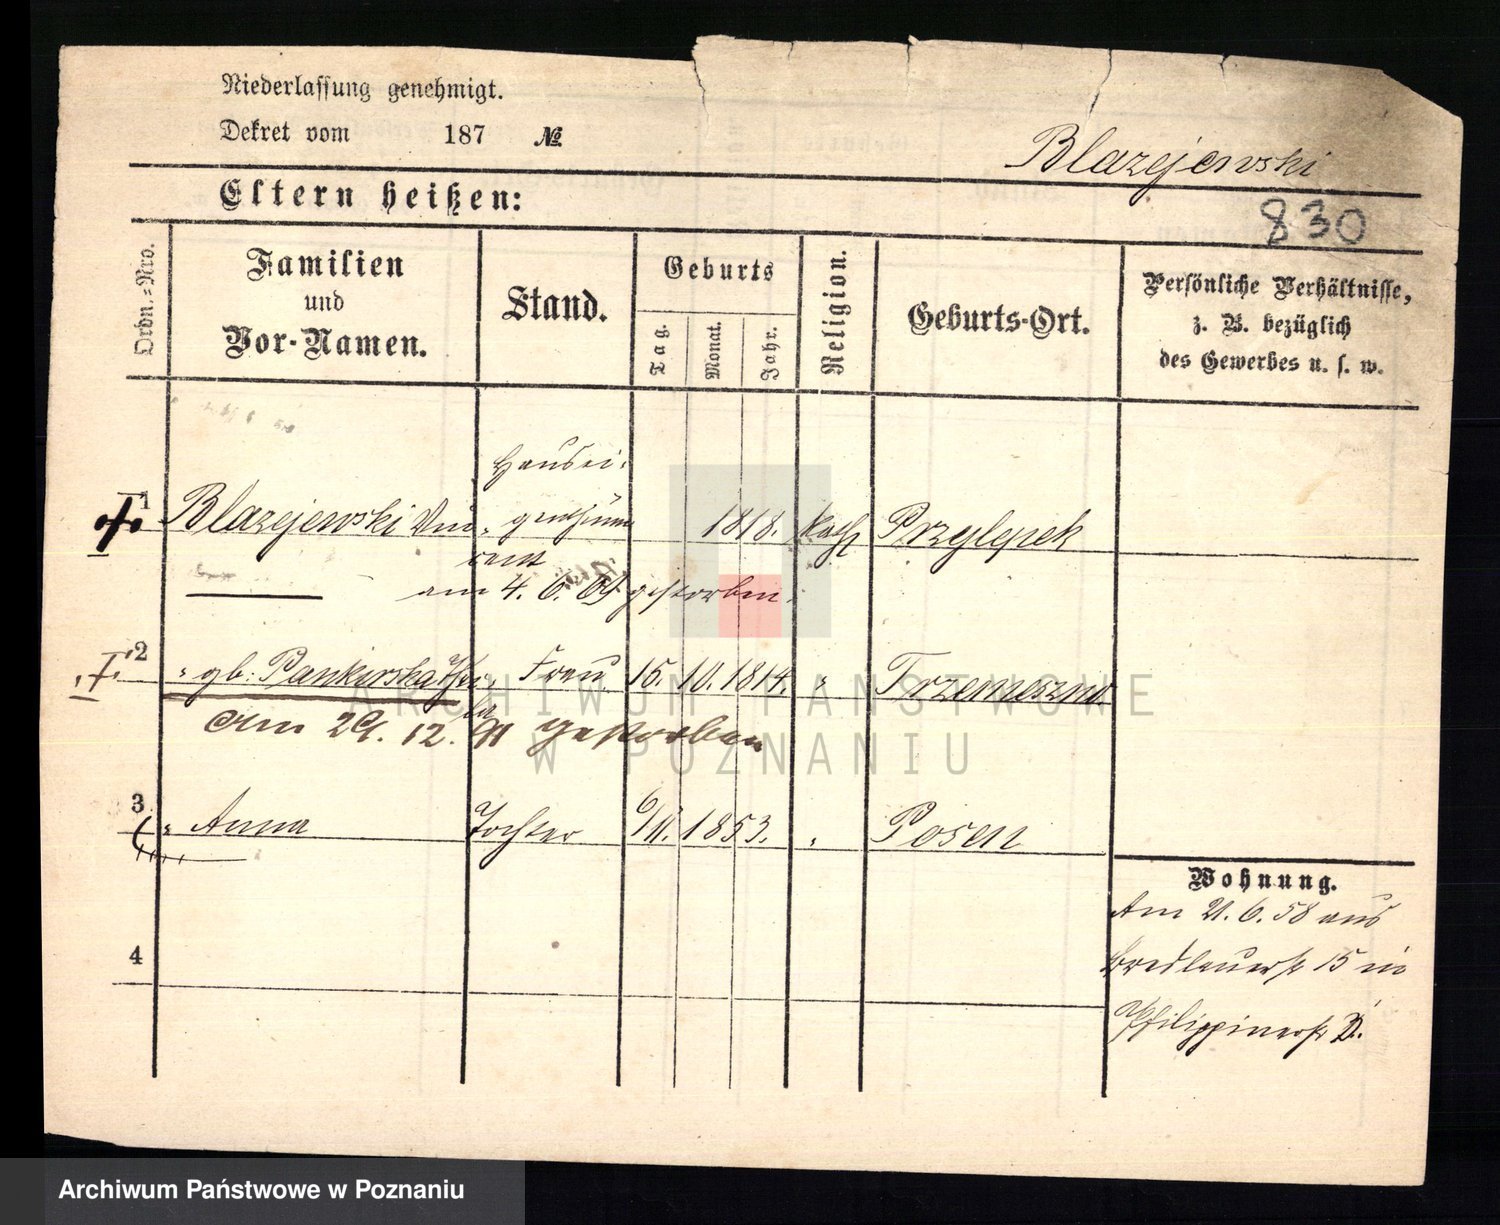 Niederlassung genehmigt.
Dekret vom 187 №
Blazejewski
Eltern heißen:
830
Ordn.-Nro.
Familien
und
Vor-Namen.
Stand.
Geburts
Tag.
Monat.
Jahr.
Religion.
Geburts-Ort.
Persönliche Verhältnisse,
z. B. bezüglich
des Gewerbes u. s. w.
Hausei-
1 Blazejewski Vin- genthümer 1818. kath Przylepek
cent
am 4. 6. 69 gestorben.
2 " gb: Pankowska Frau 15. 10. 1814. " Trzemeszno
am 29. 12. 91 gestorben
3 " Anna Tochter 6/11. 1853. " Posen
Wohnung.
Am 21. 6. 58 aus
4 Breslauerstr 15 in
Philippinerstr 2.
ARCHIWUM PAŃSTWOWE
W POZNANIU
Archiwum Państwowe w Poznaniu